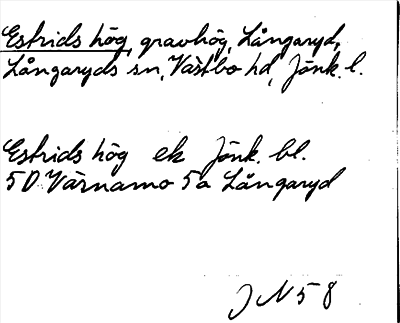 Estrids hög, gravhög, Långaryd,
Långaryds sn, Västbo hd, Jönk. l.
Estrids hög ek Jönk. bl.
5D Värnamo 5a Långaryd
JN 58